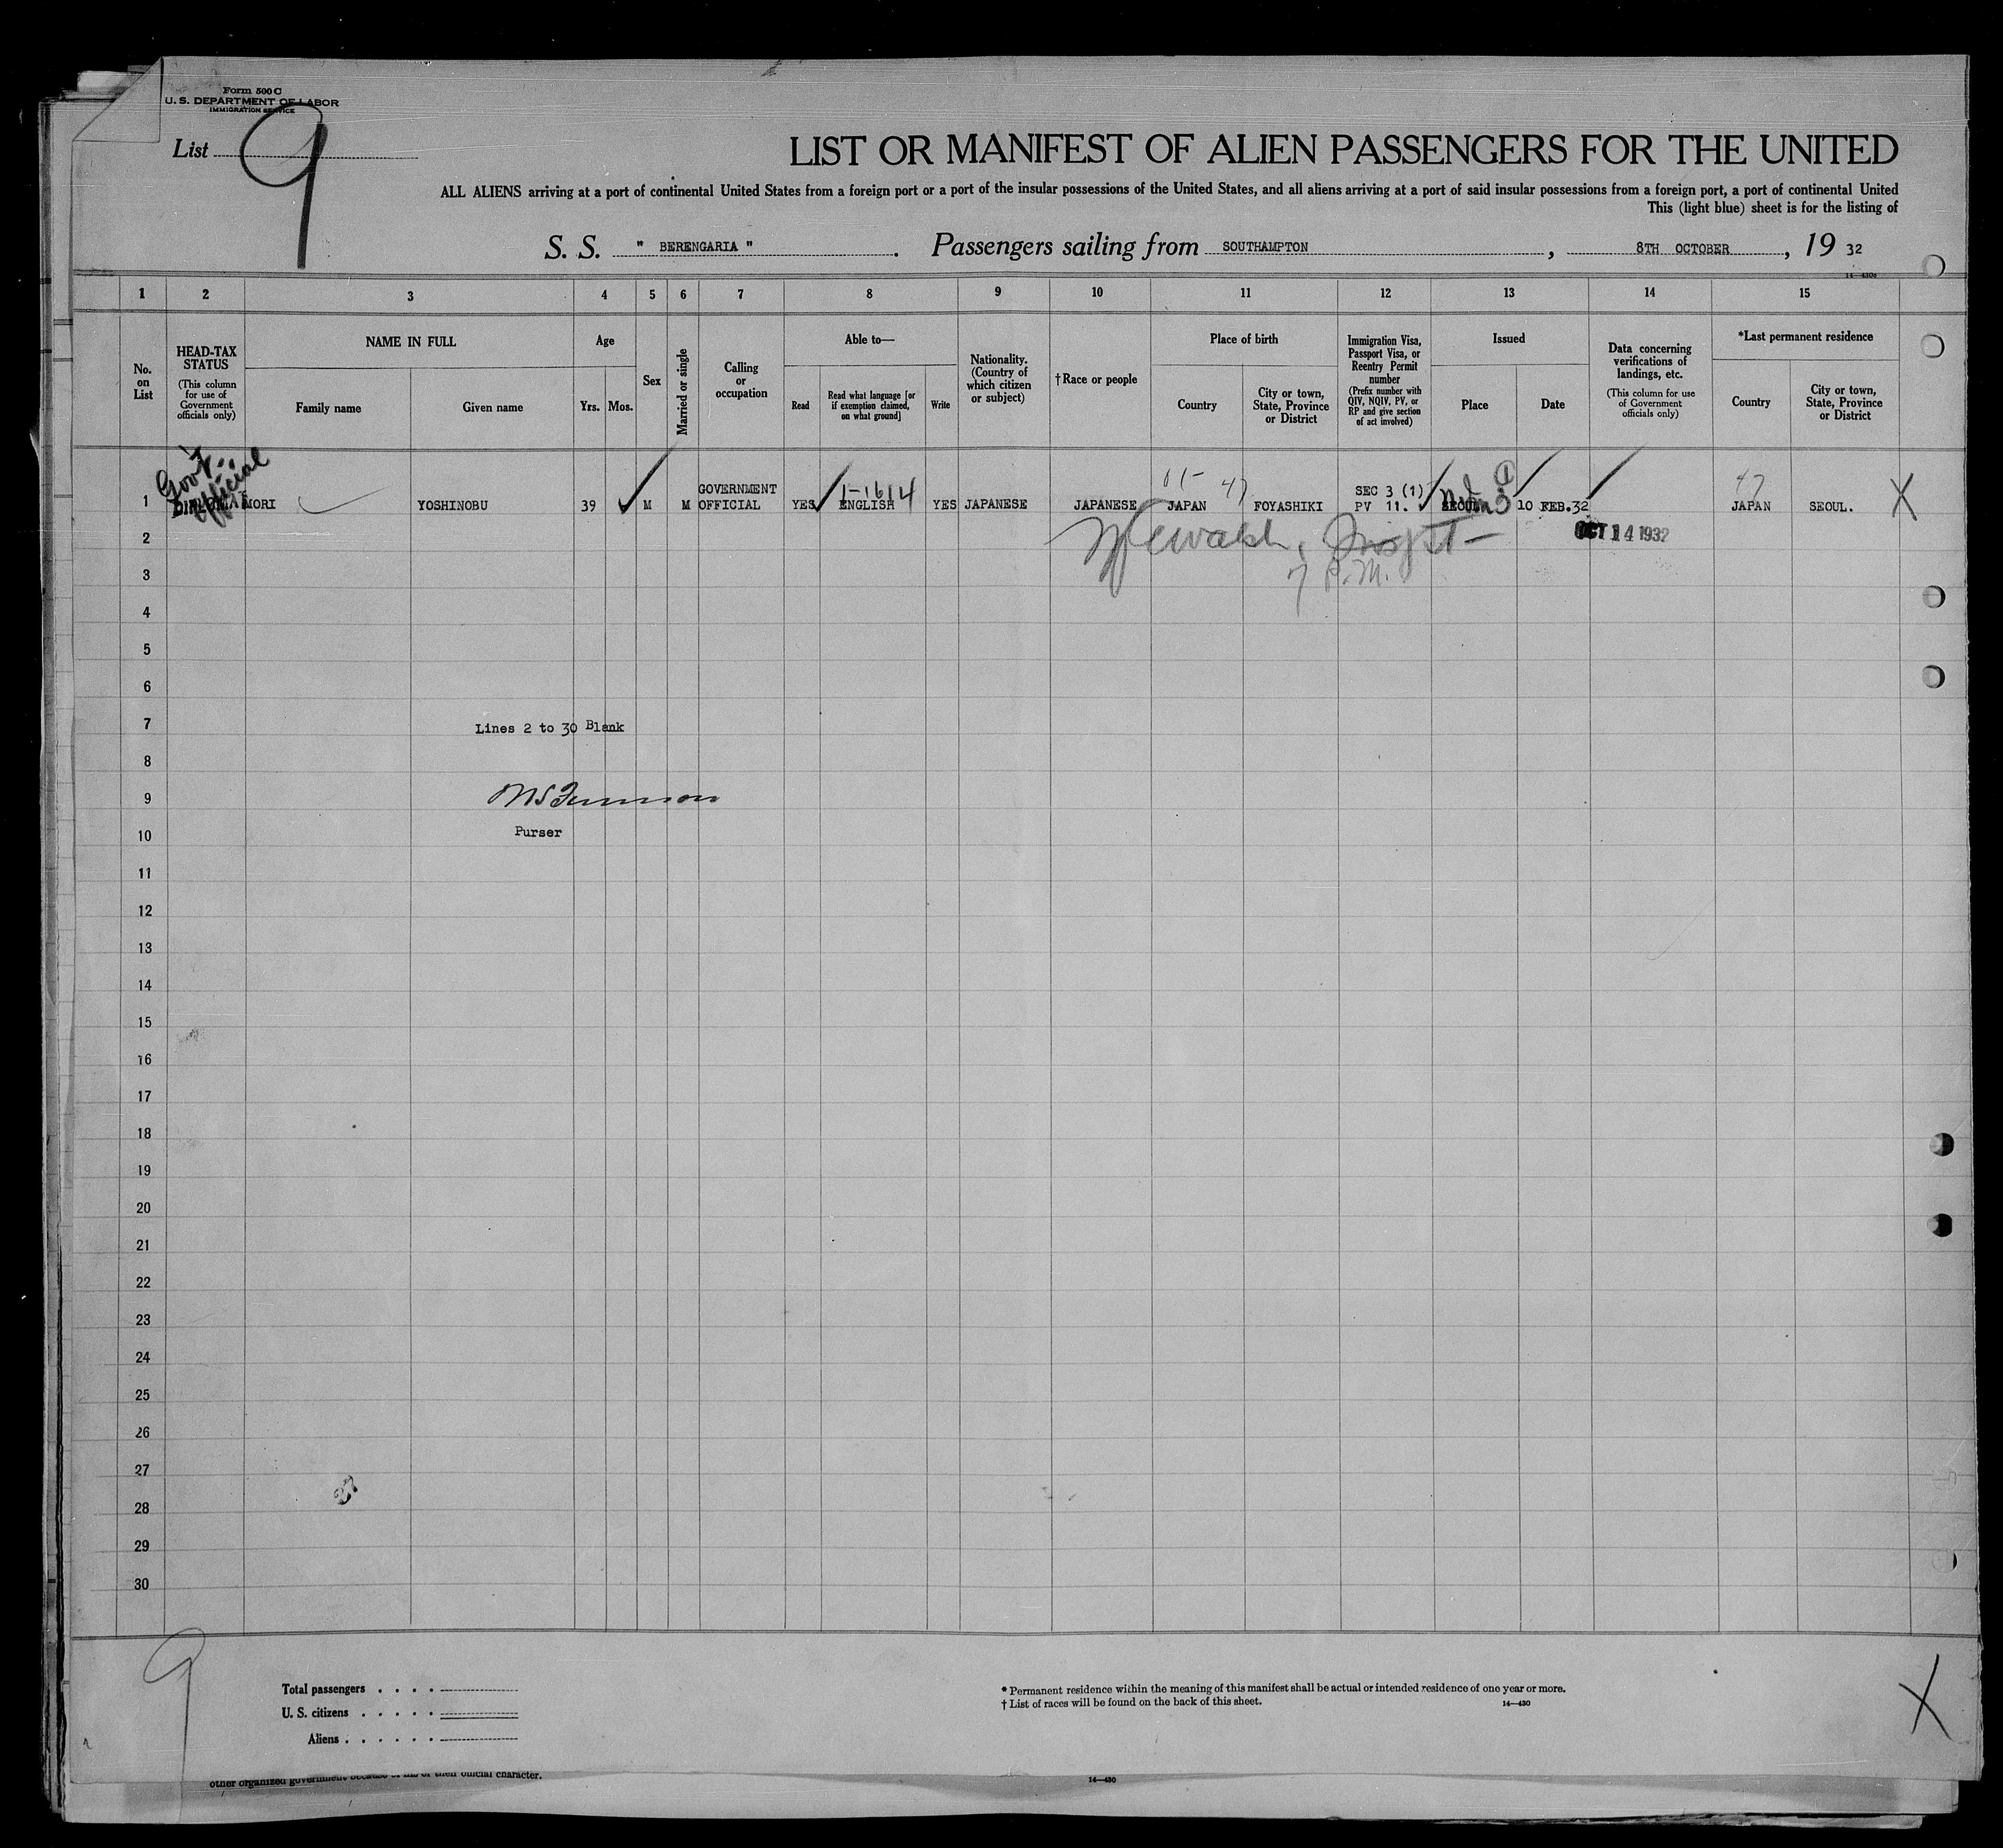 Form 500 C
U. S. DEPARTMENT OF LABOR
IMMIGRATION SERVICE
List 9
LIST OR MANIFEST OF ALIEN PASSENGERS FOR THE UNITED
ALL ALIENS arriving at a port of continental United States from a foreign port or a port of the insular possessions of the United States, and all aliens arriving at a port of said insular possessions from a foreign port, a port of continental United
This (light blue) sheet is for the listing of
S. S. " BERENGARIA " . Passengers sailing from SOUTHAMPTON , 8TH OCTOBER , 19 32
1 2 3 4 5 6 7 8 9 10 11 12 13 14 15
No. on List
HEAD-TAX STATUS (This column for use of Government officials only)
NAME IN FULL
Family name Given name
Age
Yrs. Mos.
Sex
Married or single
Calling or occupation
Able to—
Read
Read what language [or if exemption claimed, on what ground]
Write
Nationality. (Country of which citizen or subject)
†Race or people
Place of birth
Country
City or town, State, Province or District
Immigration Visa, Passport Visa, or Reentry Permit number (Prefix number with QIV, NQIV, PV, or RP and give section of act involved)
Issued
Place Date
Data concerning verifications of landings, etc. (This column for use of Government officials only)
*Last permanent residence
Country
City or town, State, Province or District
Gov't. Official
1-1614
47
47
1 MORI YOSHINOBU 39 M M GOVERNMENT OFFICIAL YES ENGLISH YES JAPANESE JAPANESE JAPAN FOYASHIKI SEC 3 (1) PV 11. SEOUL 10 FEB.32 JAPAN SEOUL. X
OCT 14 1932
2
7 P.M.
3
4
5
6
7
Lines 2 to 30 Blank
8
9
10
Purser
11
12
13
14
15
16
17
18
19
20
21
22
23
24
25
26
27
28
29
30
9
Total passengers . . . .
U. S. citizens . . . . .
Aliens . . . . . .
* Permanent residence within the meaning of this manifest shall be actual or intended residence of one year or more.
† List of races will be found on the back of this sheet.
14—430
X
other organized government because of his or their official character.
14—430